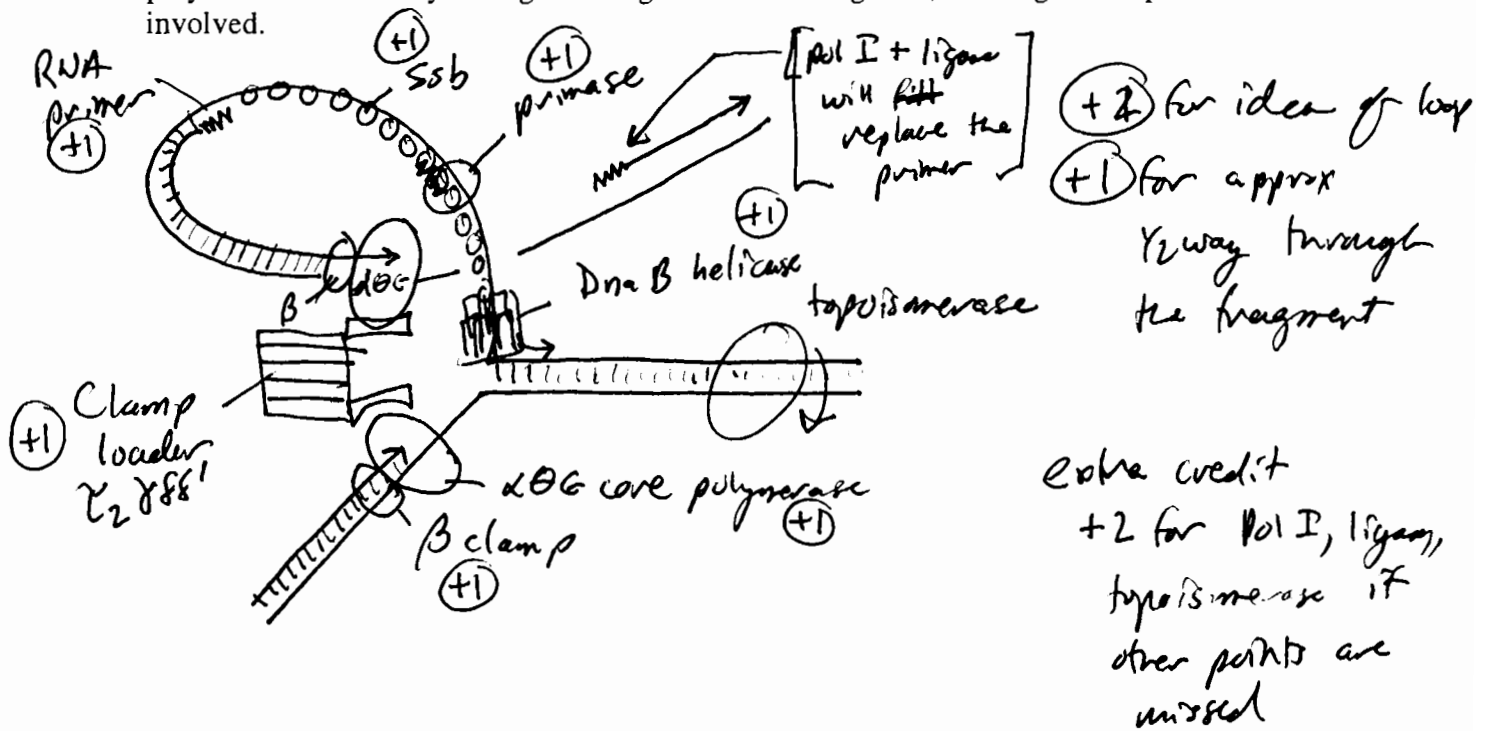 involved.
RNA
primer
+1
+1
Ssb
+1
primase
[pol I + ligase
will fill
replace the
primer]
+2 for idea of loop
+1 for approx
1/2 way through
the fragment
+1
DnaB helicase
topoisomerase
β
αθε
+1 Clamp
loader
τ2 γδδ'
αθε core polymerase
+1
β clamp
+1
extra credit
+2 for Pol I, ligase,
topoisomerase if
other points are
missed